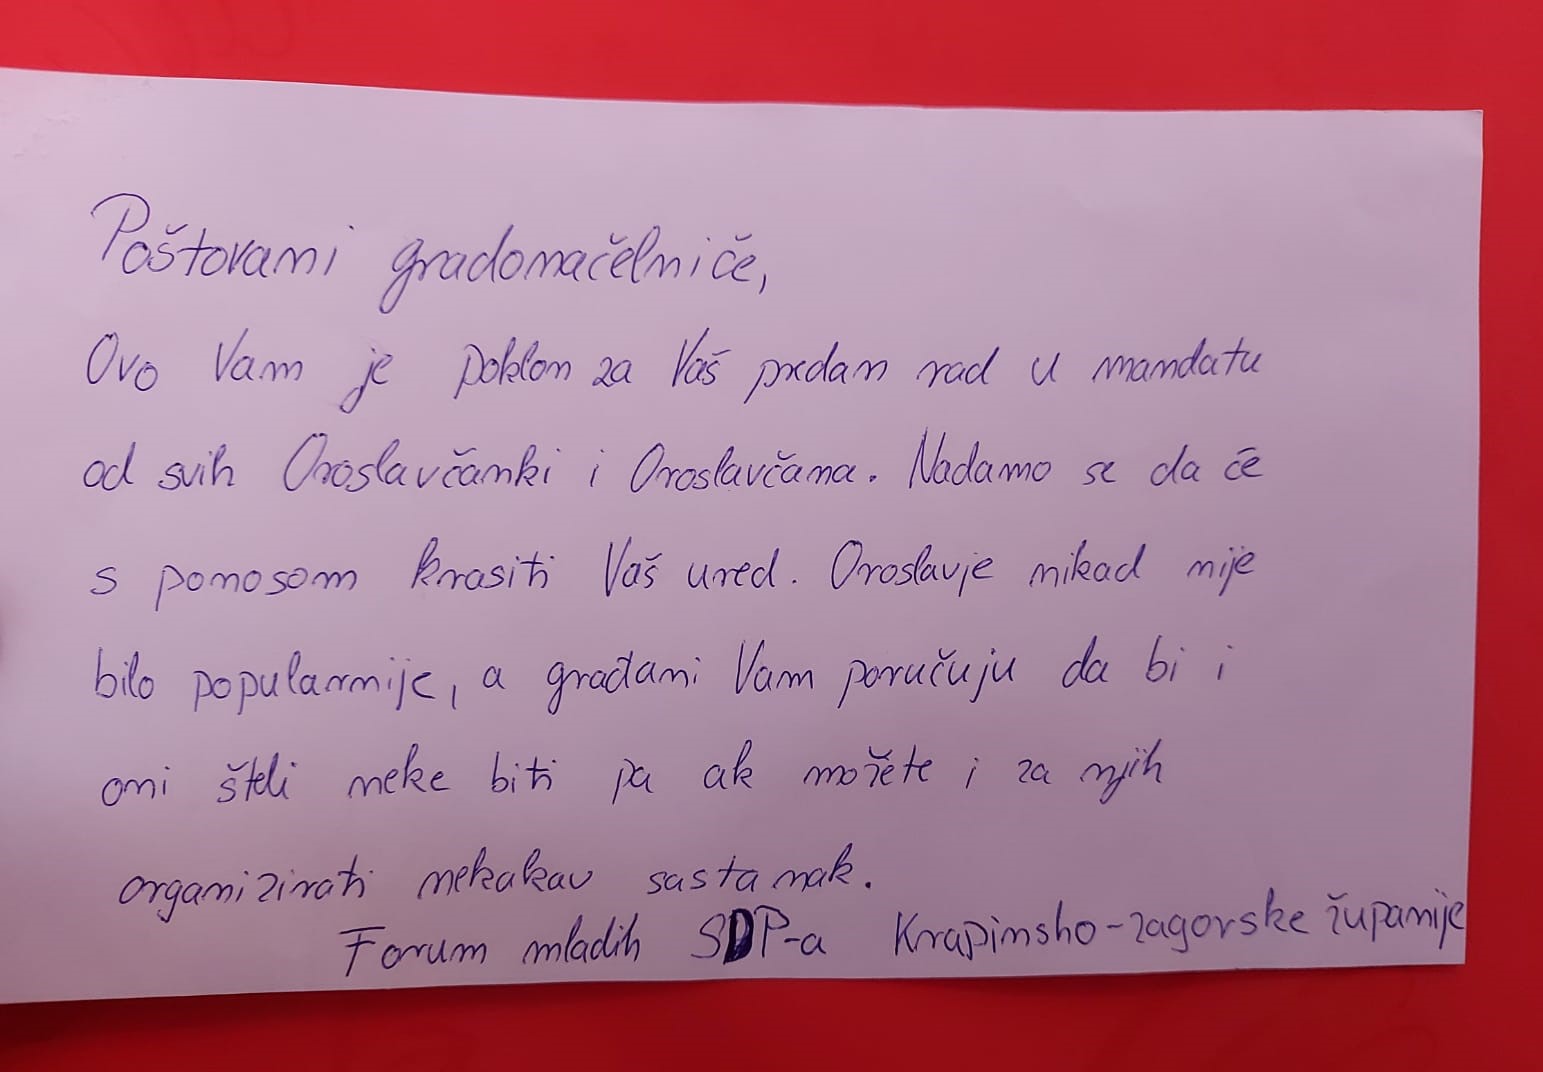 Poštovani gradonačelniče,
Ovo Vam je poklon za Vaš predan rad u mandatu
od svih Oroslavčanki i Oroslavčana. Nadamo se da će
s ponosom krasiti Vaš ured. Oroslavje nikad nije
bilo popularnije, a građani Vam poručuju da bi i
oni šteli neke biti pa ak možete i za njih
organizirati nekakav sastanak.
Forum mladih SDP-a Krapinsko-zagorske županije